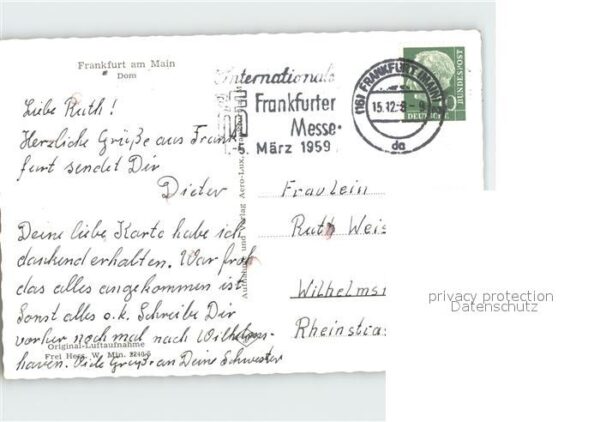 Frankfurt am Main
Dom
Liebe Ruth!
Herzliche Grüße aus Frank-
furt sendet Dir
Dieter
Deine liebe Karte habe ich
dankend erhalten. War froh
das alles angekommen ist
Sonst alles o.k. Schreibe Dir
vorher noch mal nach Wilhelms-
haven. Viele Grüße an Deine Schwester
Original-Luftaufnahme
Frei Hess. W. Min.
und Verlag Aero-Lux,
Internationale
Frankfurter
Messe
-5. März 1959
(16) FRANKFURT (MAIN) 2
15.12.
da
DEUTSCHE
BUNDESPOST
Fraulein
Ruth Weis
Wilhelms
Rheinstra
privacy protection
Datenschutz